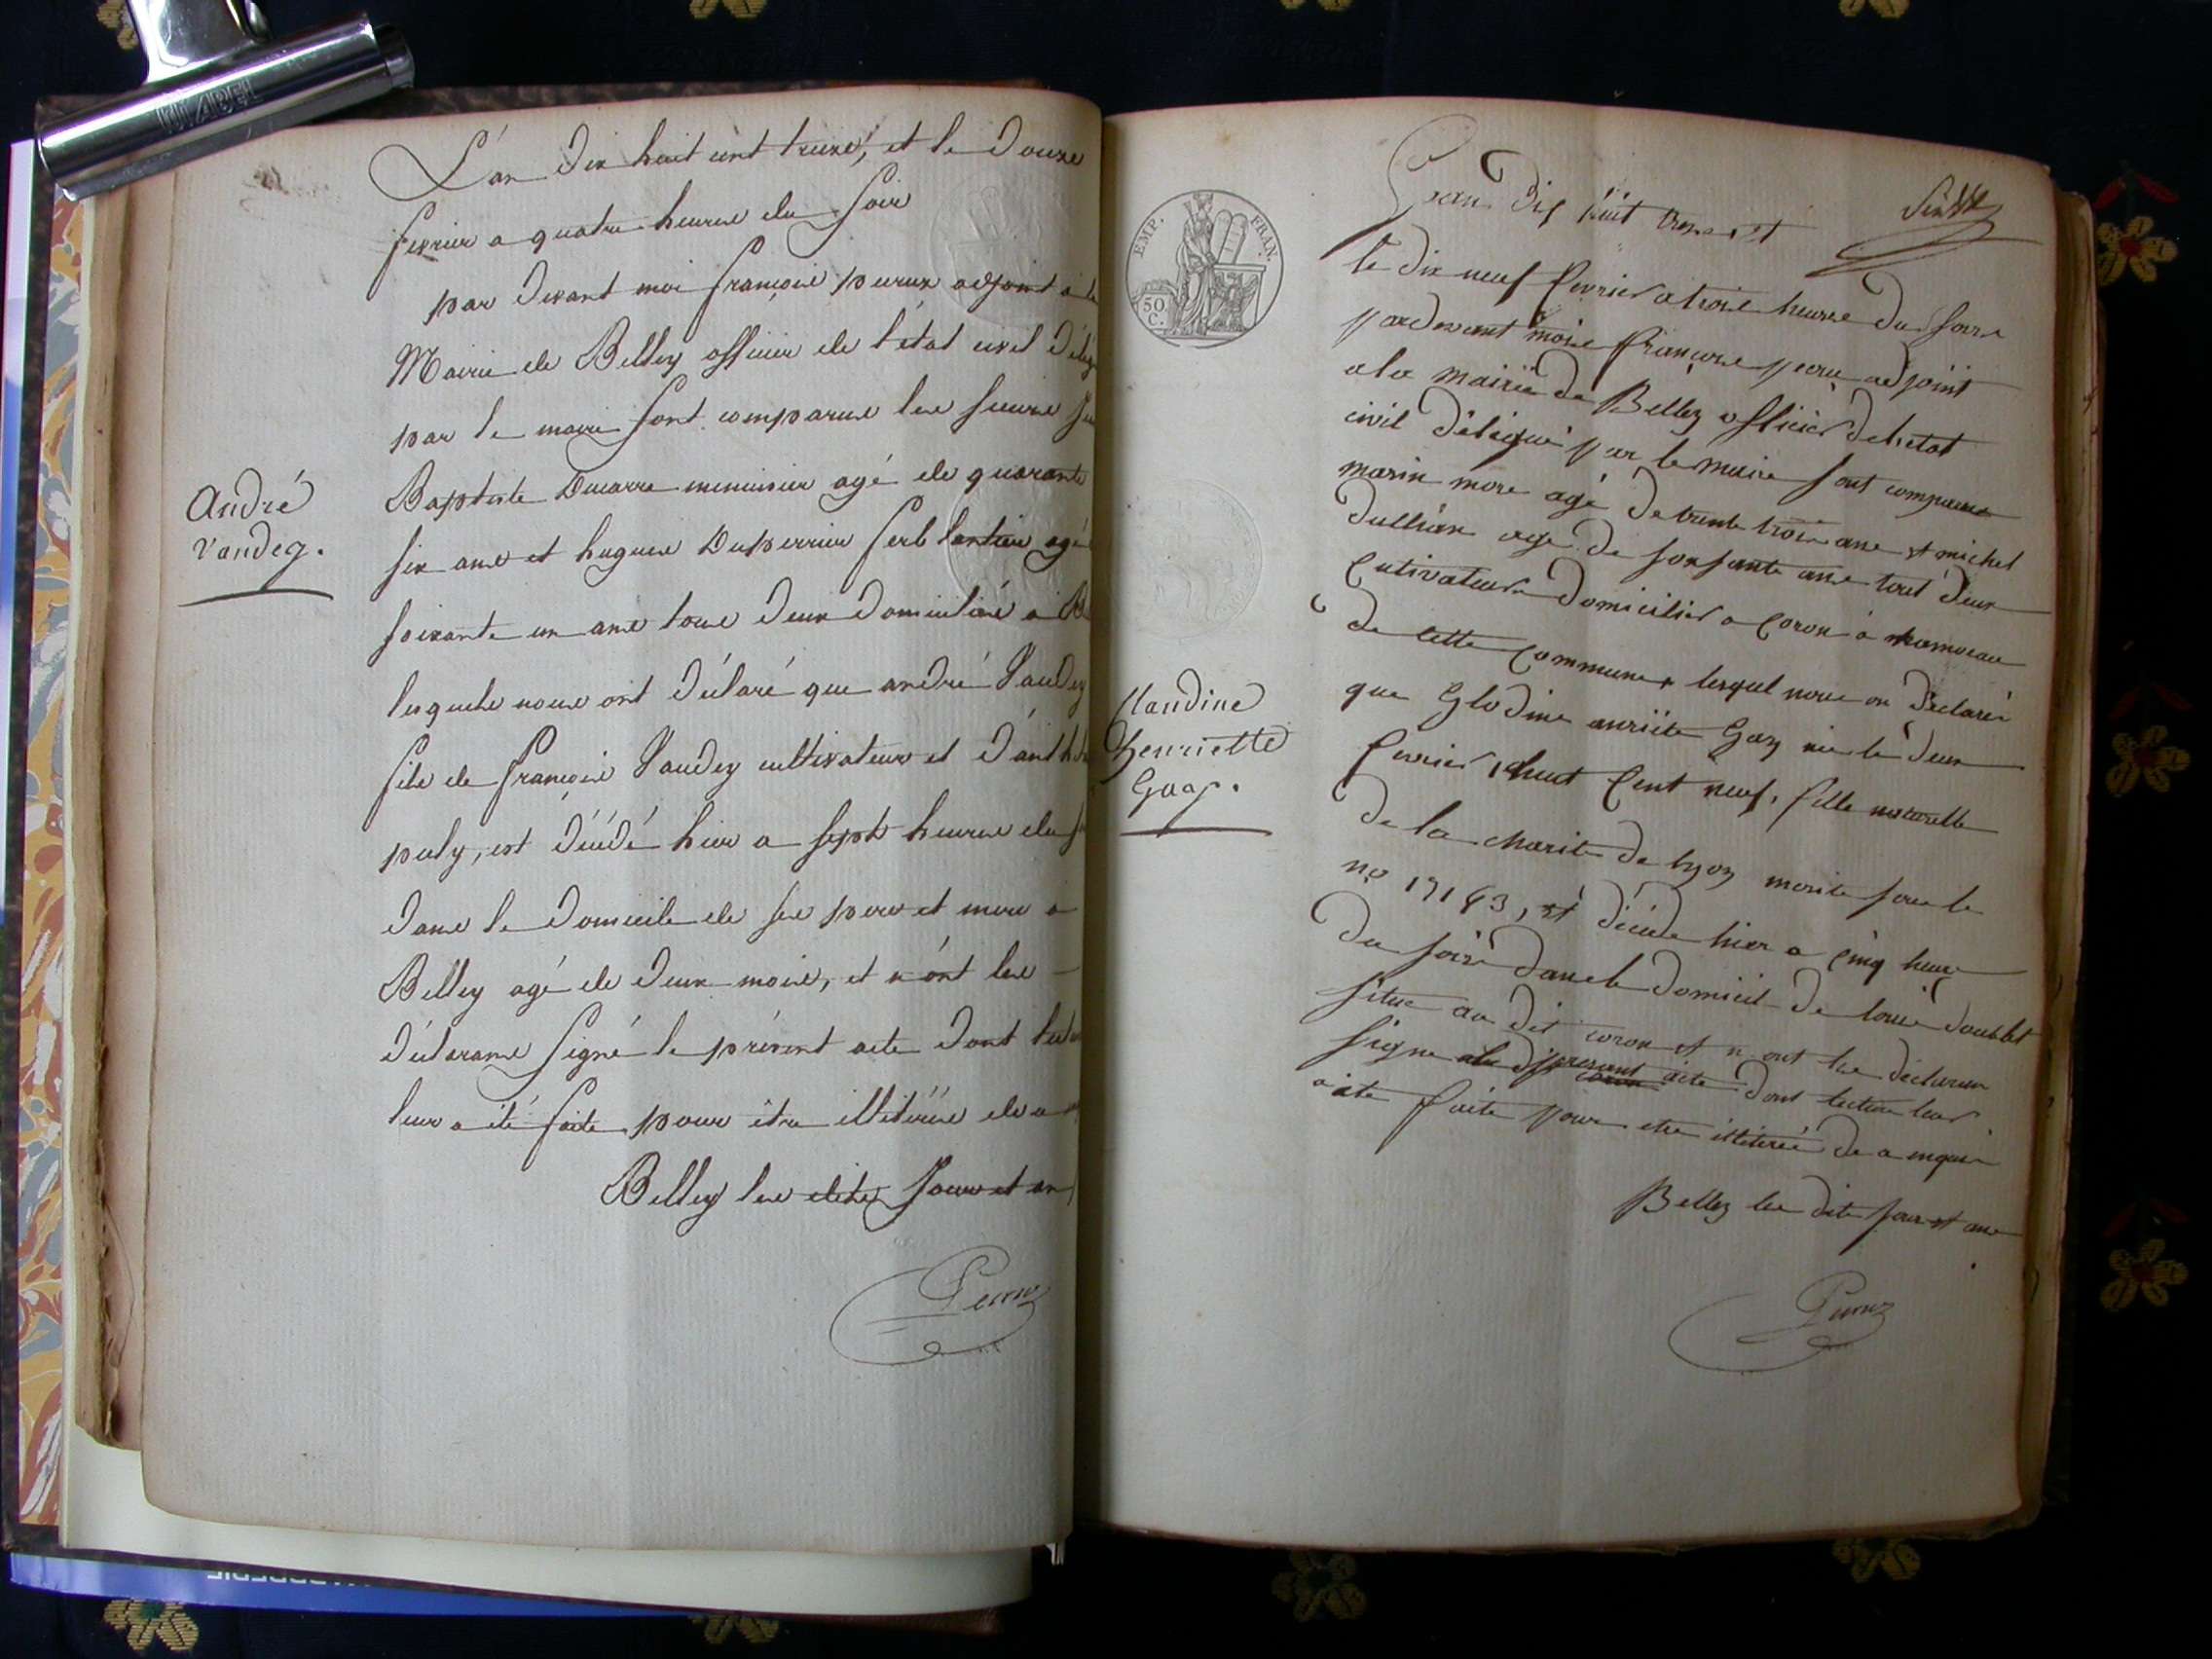 L'an dix huit cent treize, et le douze
fevrier a quatre heures du soir
par devant moi françois peruz adjoint a la
Mairie de Belley officier de l'état civil délég
par le maire sont comparus les sieurs
Baptiste Ducarre menuisier agé de quarante
six ans et hugues Duperrier ferblantier agé
soixante un ans tous deux domiciliés a
lesquels nous ont déclaré que andré Vaudey
fils de françois Vaudey cultivateur et d'anth
puly, est décédé hier a sept heures du
dans le domicile de ses pere et mere a
Belley agé de deux mois, et n'ont les
déclarans signé le présent acte dont lect
leur a été faite pour être illiterés de a
Belley les dits jour et an
Peruz
André
Vandey.
EMP. FRAN.
50
C.
L'an dix huit treze et
le dix neuf fevrier a trois heures du soire
pardevant mois françois peru adjoint
a la mairie de Belley officier de l'etat
civil délegué par le maire sont comparus
marin more agé de trente trois ans et michel
dullian age de soixsante ans tout deux
cutivateur domicilier a coron a hamoeau
de cette commune lesquel nous on déclarer
que Glodine anriete Gay née le deux
fevrier 18huit cent neuf, fille naturelle
de la charite de lyon
no 17143, et décéde hier a cinq heure
du soire dans le domicil de louis doublet
situe au dit coron et n ont les declarans
signe le present acte dont lecture leur
a ete faite pour etre illiteré de a
Belley les dits jour et ans
Peruz
Claudine
henriette
Guay.